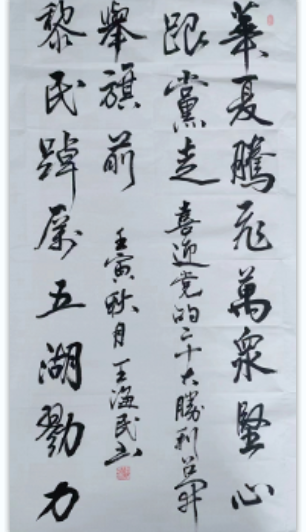 華夏騰飛萬衆堅心
跟黨走
黎民踔厲五湖勠力
舉旗前
喜迎党的二十大勝利召开
壬寅秋月王海民书